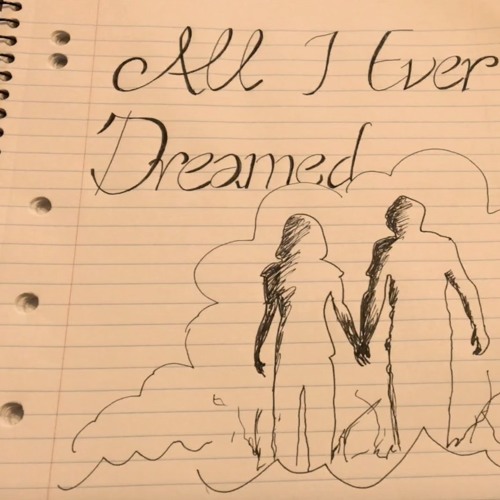 All I Ever
Dreamed